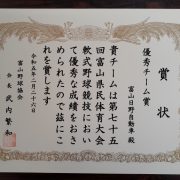 賞状
優秀チーム賞
富山日野自動車殿
貴チームは第七十五
回富山県民体育大会
軟式野球競技におい
て優秀な成績をおさ
められたので茲にこ
れを賞します
令和五年二月二十六日
富山野球協会
会長 武内繁和